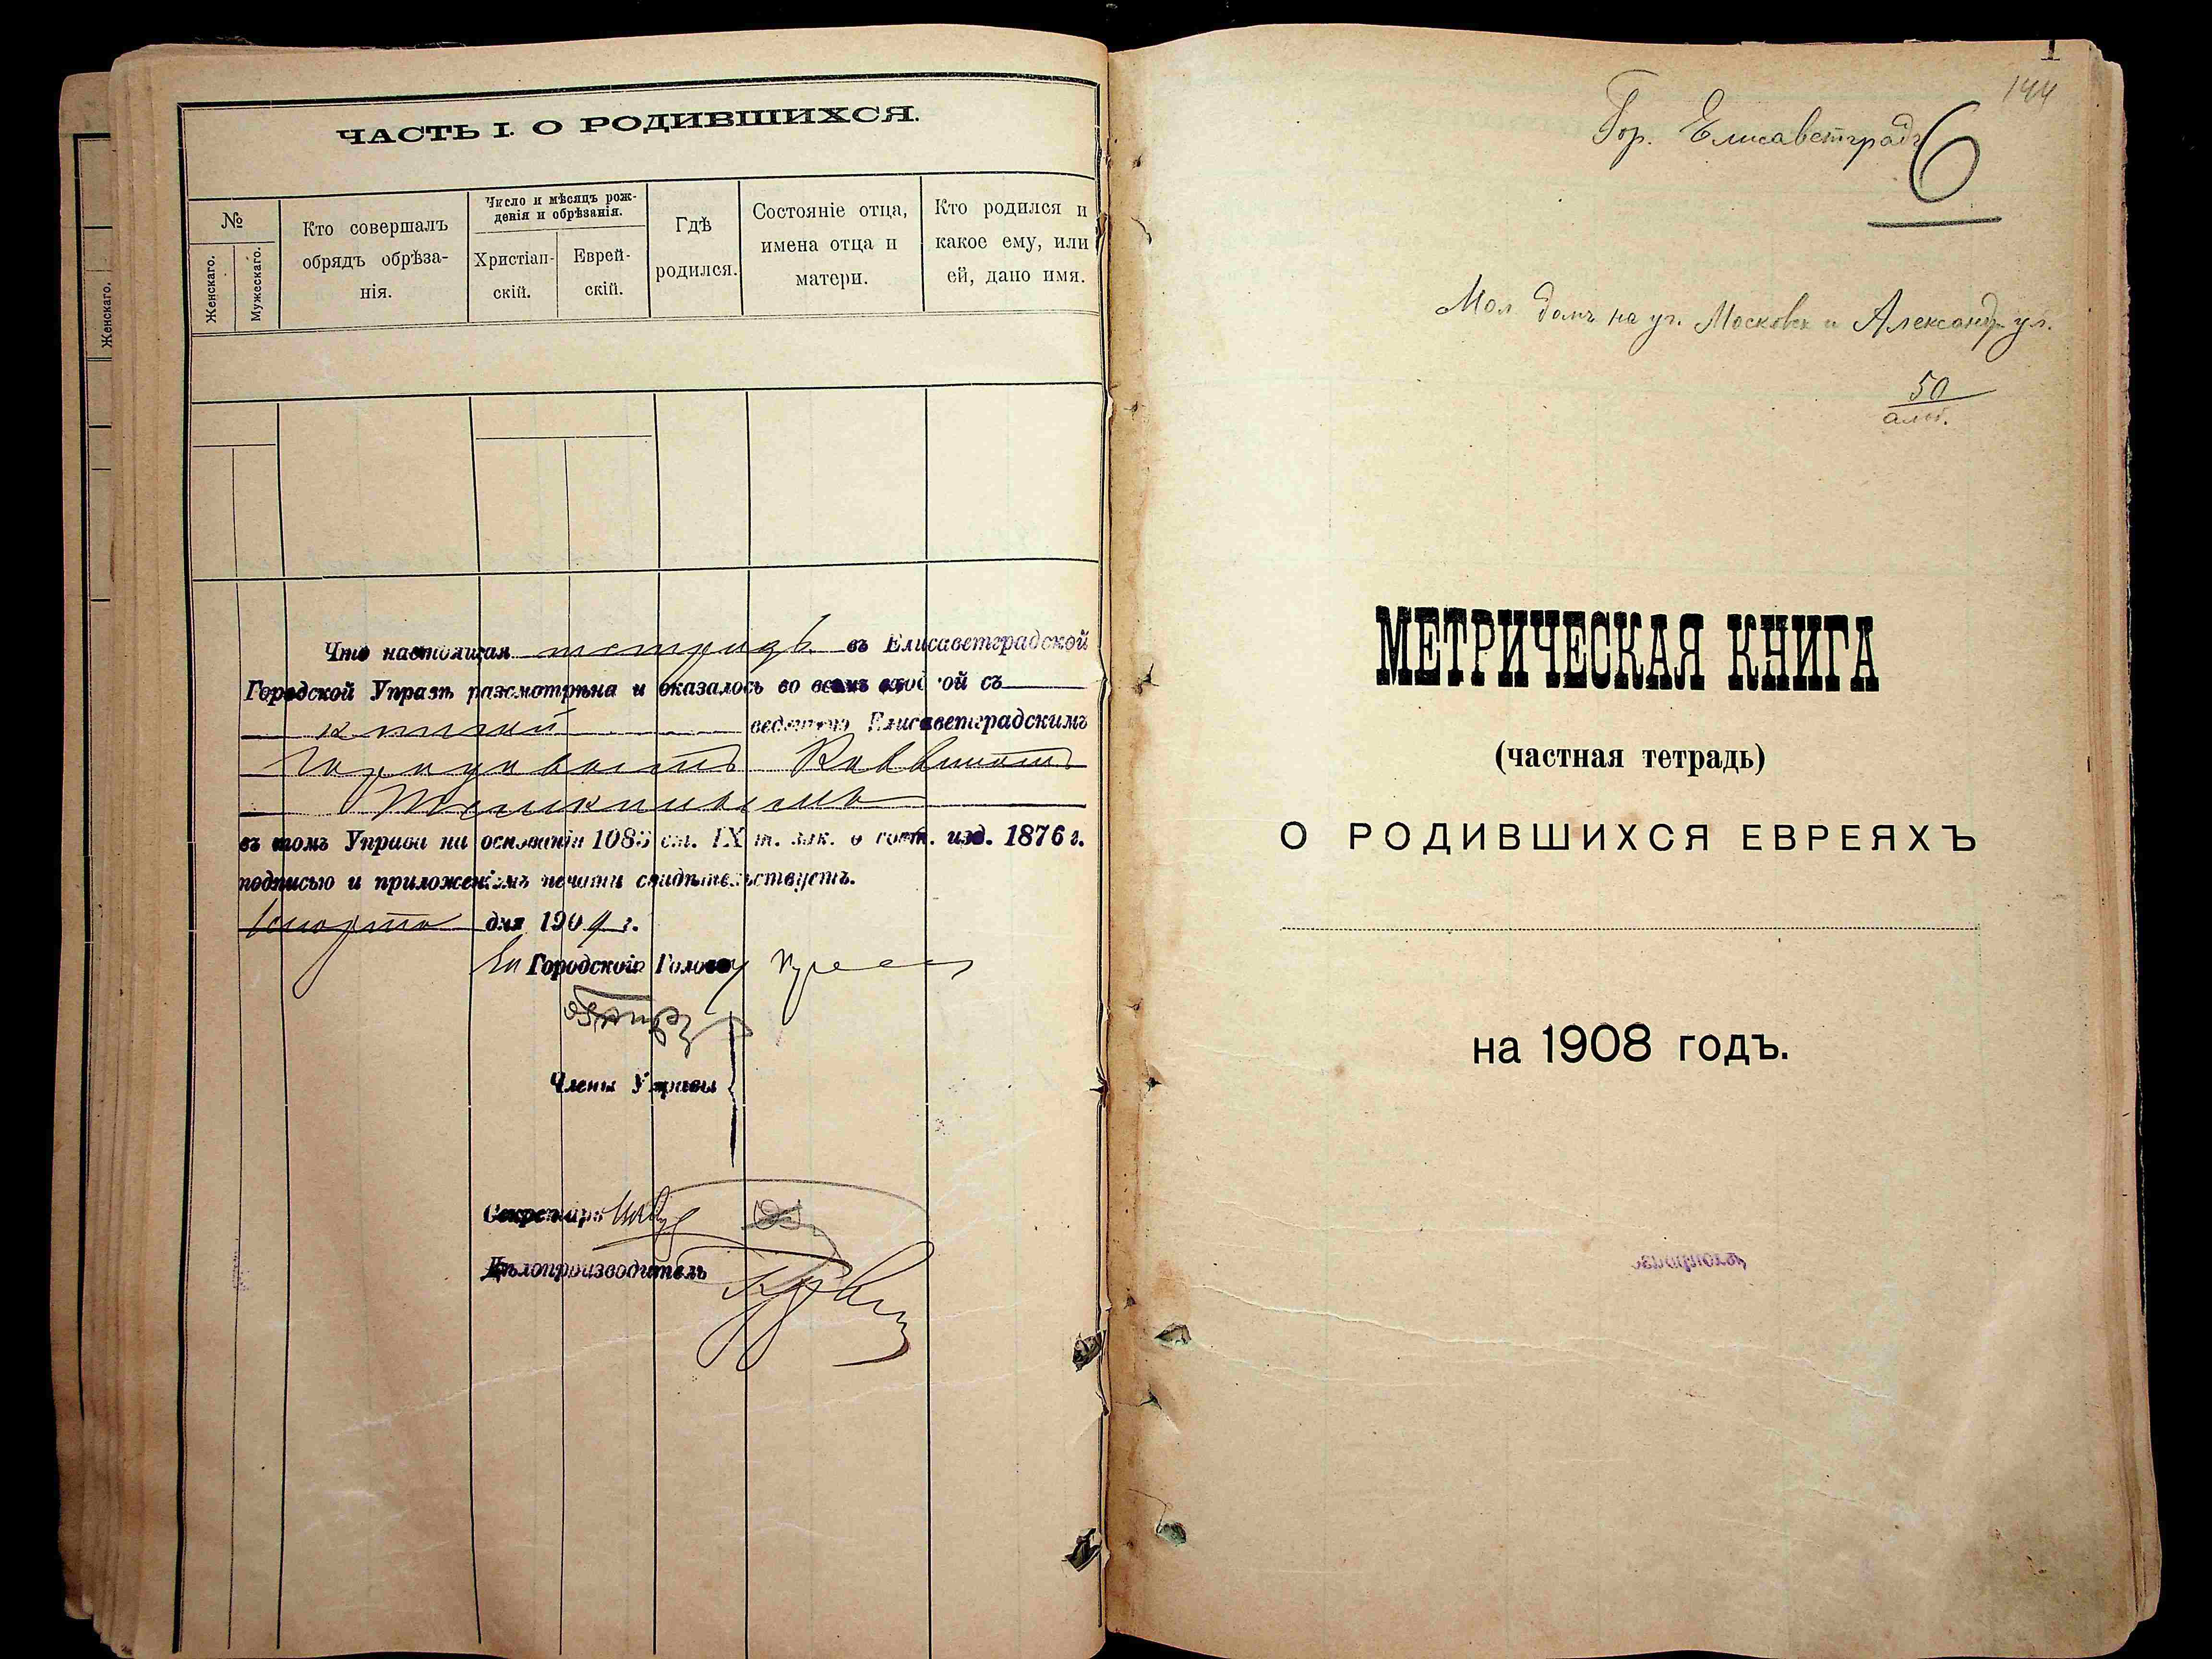 ЧАСТЬ I. О РОДИВШИХСЯ.
№
Женскаго.
Мужескаго.
Кто совершалъ
обрядъ обрѣза-
нія.
Число и мѣсяцъ рож-
денія и обрѣзанія.
Христіан-
скій.
Еврей-
скій.
Гдѣ
родился.
Состояніе отца,
имена отца и
матери.
Кто родился и
какое ему, или
ей, дано имя.
Женскаго.
Что настоящая тетрадь въ Елисаветградской
Городской Управѣ разсмотрѣна и оказалось во всемъ сход ой съ
книгой ведѣнною Елисаветградскимъ
Городовымъ Раввиномъ
въ томъ Управа на основаніи 1085 ст. IX т. зак. о сост. изд. 1876 г.
подписью и приложеніемъ печати свидѣтельствуетъ.
марта дня 1909 г.
За Городского Голову
Члены Управы
Секретарь
Дѣлопроизводитель
1
144
Гор. Елисаветградъ
6
Мол домъ на уг. Московск и Александр ул.
50
МЕТРИЧЕСКАЯ КНИГА
(частная тетрадь)
О РОДИВШИХСЯ ЕВРЕЯХЪ
на 1908 годъ.